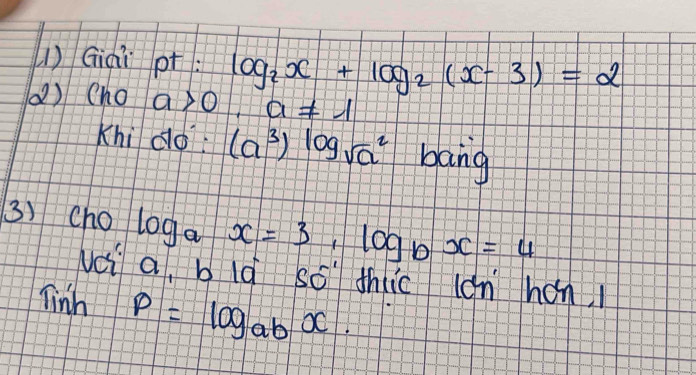 1) Giải pt: log₂x + log₂(x-3) = 2
2) Cho a>0, a≠1
Khi đó: (a³) log√a² bằng
3) Cho logₐ x = 3, log_b x = 4
Với a, b là số thức lớn hơn 1
Tính P = log_ab x.